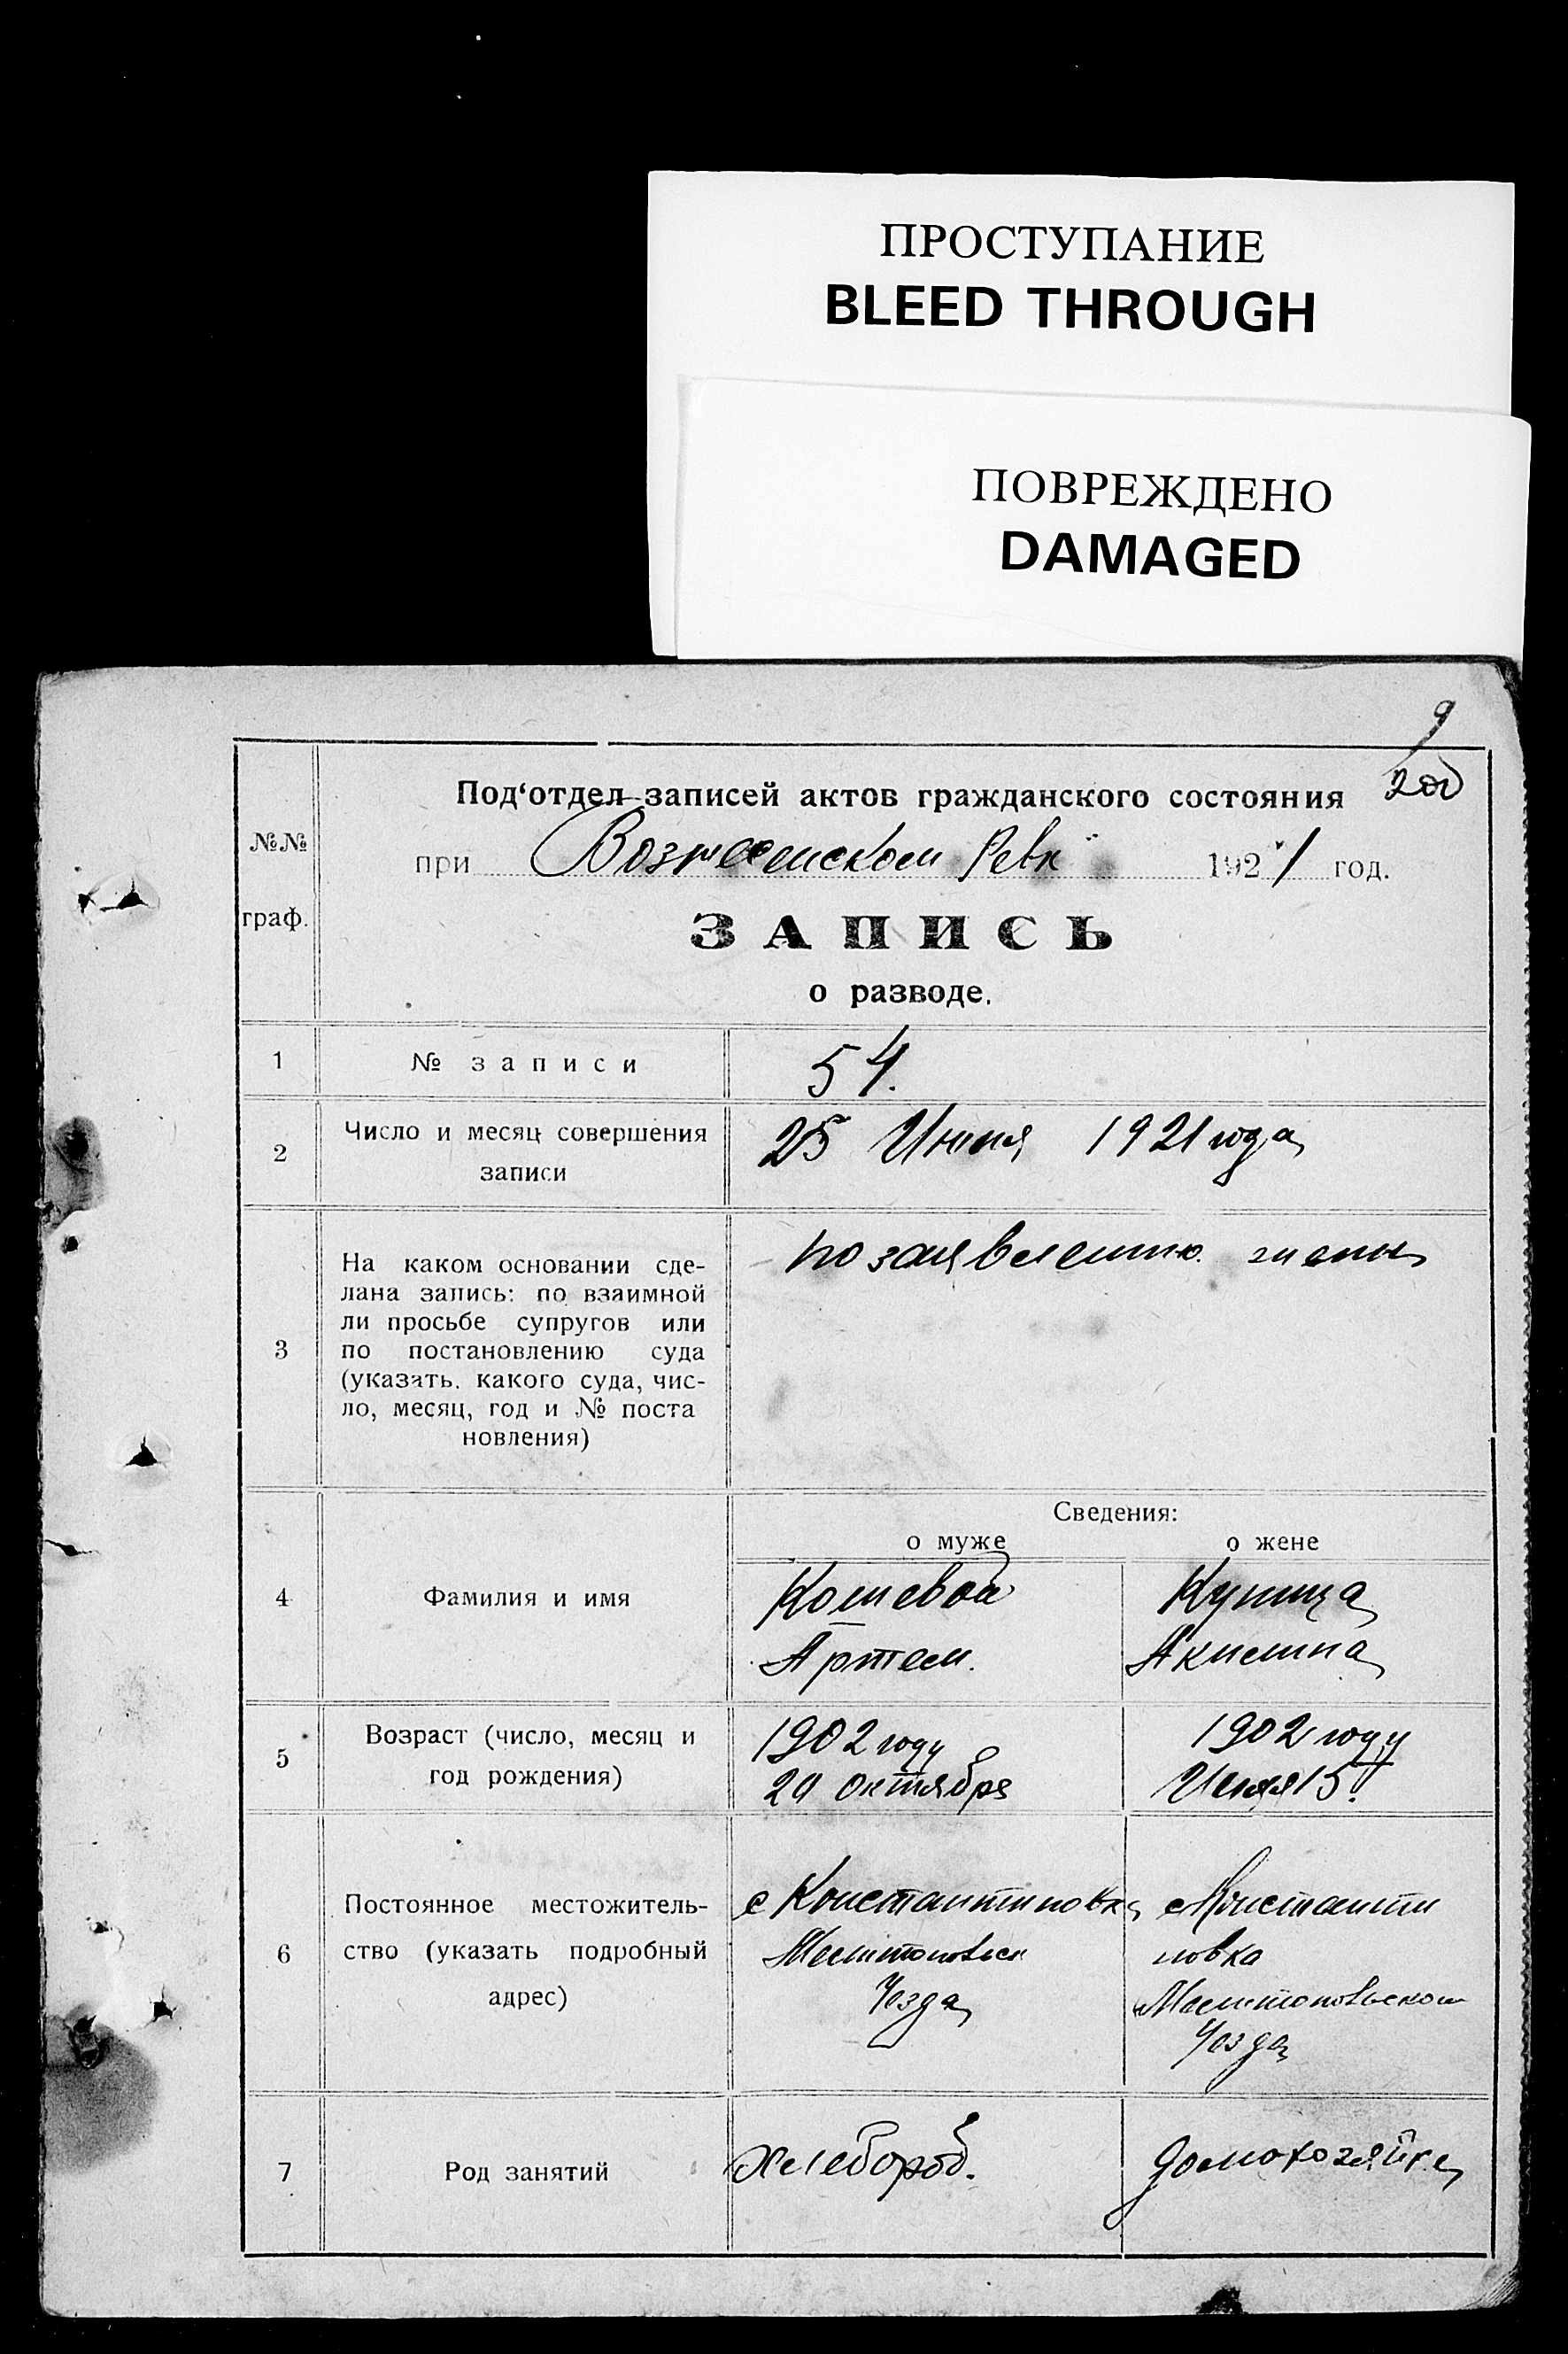 ПРОСТУПАНИЕ
BLEED THROUGH
ПОВРЕЖДЕНО
DAMAGED
9
200
Под‘отдел записей актов гражданского состояния
№№
граф.
при Вознесенском Ревк 1921 год.
ЗАПИСЬ
о разводе.
1
№ записи
54.
2
Число и месяц совершения
записи
25 Июня 1921 года
3
На каком основании сде-
лана запись: по взаимной
ли просьбе супругов или
по постановлению суда
(указать. какого суда, чис-
ло, месяц, год и № поста
новления)
по заявлению жены
Сведения:
о муже
о жене
4
Фамилия и имя
Кошевой
Артем.
Куница
Акилина
5
Возраст (число, месяц и
год рождения)
1902 году
20 октября
1902 году
15
6
Постоянное местожитель-
ство (указать подробный
адрес)
с Константиновка
Мелитопольск
Уезда
с Константи
новка
Мелитопольского
Уезда
7
Род занятий
Хлебороб.
домохозяйка